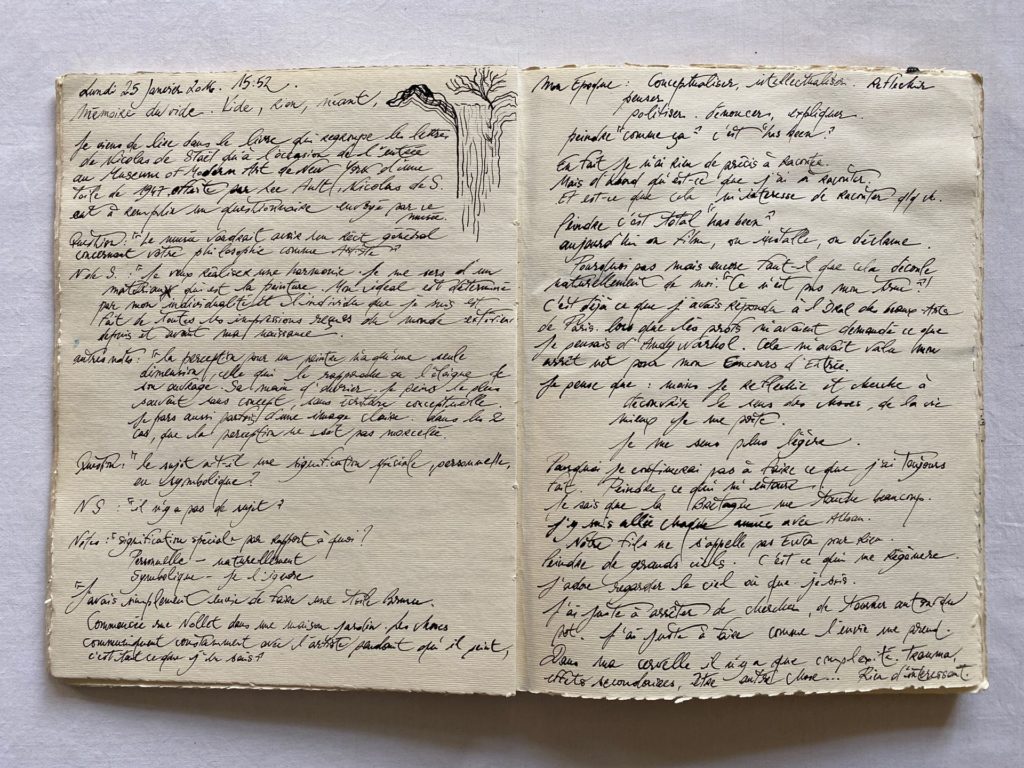 Lundi 25 Janvier 2016. 15:52
Mémoire du vide. Vide, rien, néant,
Je viens de lire dans le livre qui regroupe les lettres
de Nicolas de Staël qu'à l'occasion de l'entrée
au Museum of Modern Art de New York d'une
toile de 1947 par Lee Ault, Nicolas de S.
eut à remplir un questionnaire envoyé par ce
musée.
Question : "Le musée voudrait avoir un récit général
concernant votre philosophie comme Artiste"
N de S. : "Je veux réaliser une harmonie. Je me sers d'un
matériaux qui est la peinture. Mon idéal est déterminé
par mon individualité et l'individu que je suis est
fait de toutes les impressions reçues du monde extérieur
depuis et avant ma naissance."
autres notes : "la perception pour un peintre n'a qu'une seule
dimension, celle qui le rapproche ou l'éloigne de
son ouvrage. Sa main d'ouvrier. Je peins le plus
souvent sans concept, sans écriture conceptuelle.
Je pars aussi parfois d'une image claire. Dans les 2
cas, que la perception ne soit pas morcelée.
Question : "le sujet a-t-il une signification spéciale, personnelle,
ou symbolique ?
N S : "il n'y a pas de sujet"
Notes : "signification spéciale par rapport à quoi ?
Personnelle - naturellement
Symbolique - je l'ignore
"J'avais simplement envie de faire une toile
Commencée rue Nollet dans une maison jardin. Les choses
communiquent constamment avec l'artiste pendant qu'il peint,
c'est tout ce que j'en sais"
Mon Epoque : Conceptualiser, intellectualiser. Réfléchir
penser,
politiser. dénoncer, expliquer.
peindre "comme ça" c'est "has been"?
En fait je n'ai rien de précis à Raconter.
Mais d'abord qu'est-ce que j'ai à raconter,
Et est-ce que cela m'intéresse de raconter qlq ch.
Peindre c'est total "has been"
aujourd'hui on film, on installe, on déclame.
Pourquoi pas mais encore faut-il que cela découle
naturellement de moi. "Ce n'est pas mon truc"!
C'est déjà ce que j'avais répondu à l'Oral des beaux Arts
de Paris. lorsque les profs m'avaient demandé ce que
je pensais d'Andy Warhol. Cela m'avait valu mon
arrêt net pour mon Concours d'Entrée.
Je pense que : moins je réfléchie et cherche à
découvrir le sens des choses, de la vie
mieux je me porte.
Je me sens plus légère.
Pourquoi je continuerai pas à faire ce que j'ai toujours
fait. Peindre ce qui m'entoure.
Je sais que la Bretagne me touche beaucoup.
J'y suis allée chaque année avec Alban.
Notre fils ne s'appelle pas Ewen pour Rien.
Peindre de grands ciels. C'est ce qui me Régénère.
J'adore regarder le ciel où que je sois.
J'ai juste à arrêter de chercher, de tourner autour du
pot. J'ai juste à faire comme l'envie me prend.
Dans ma cervelle il n'y a que complexité, trauma,
effets secondaires, être autre chose... Rien d'intéressant.